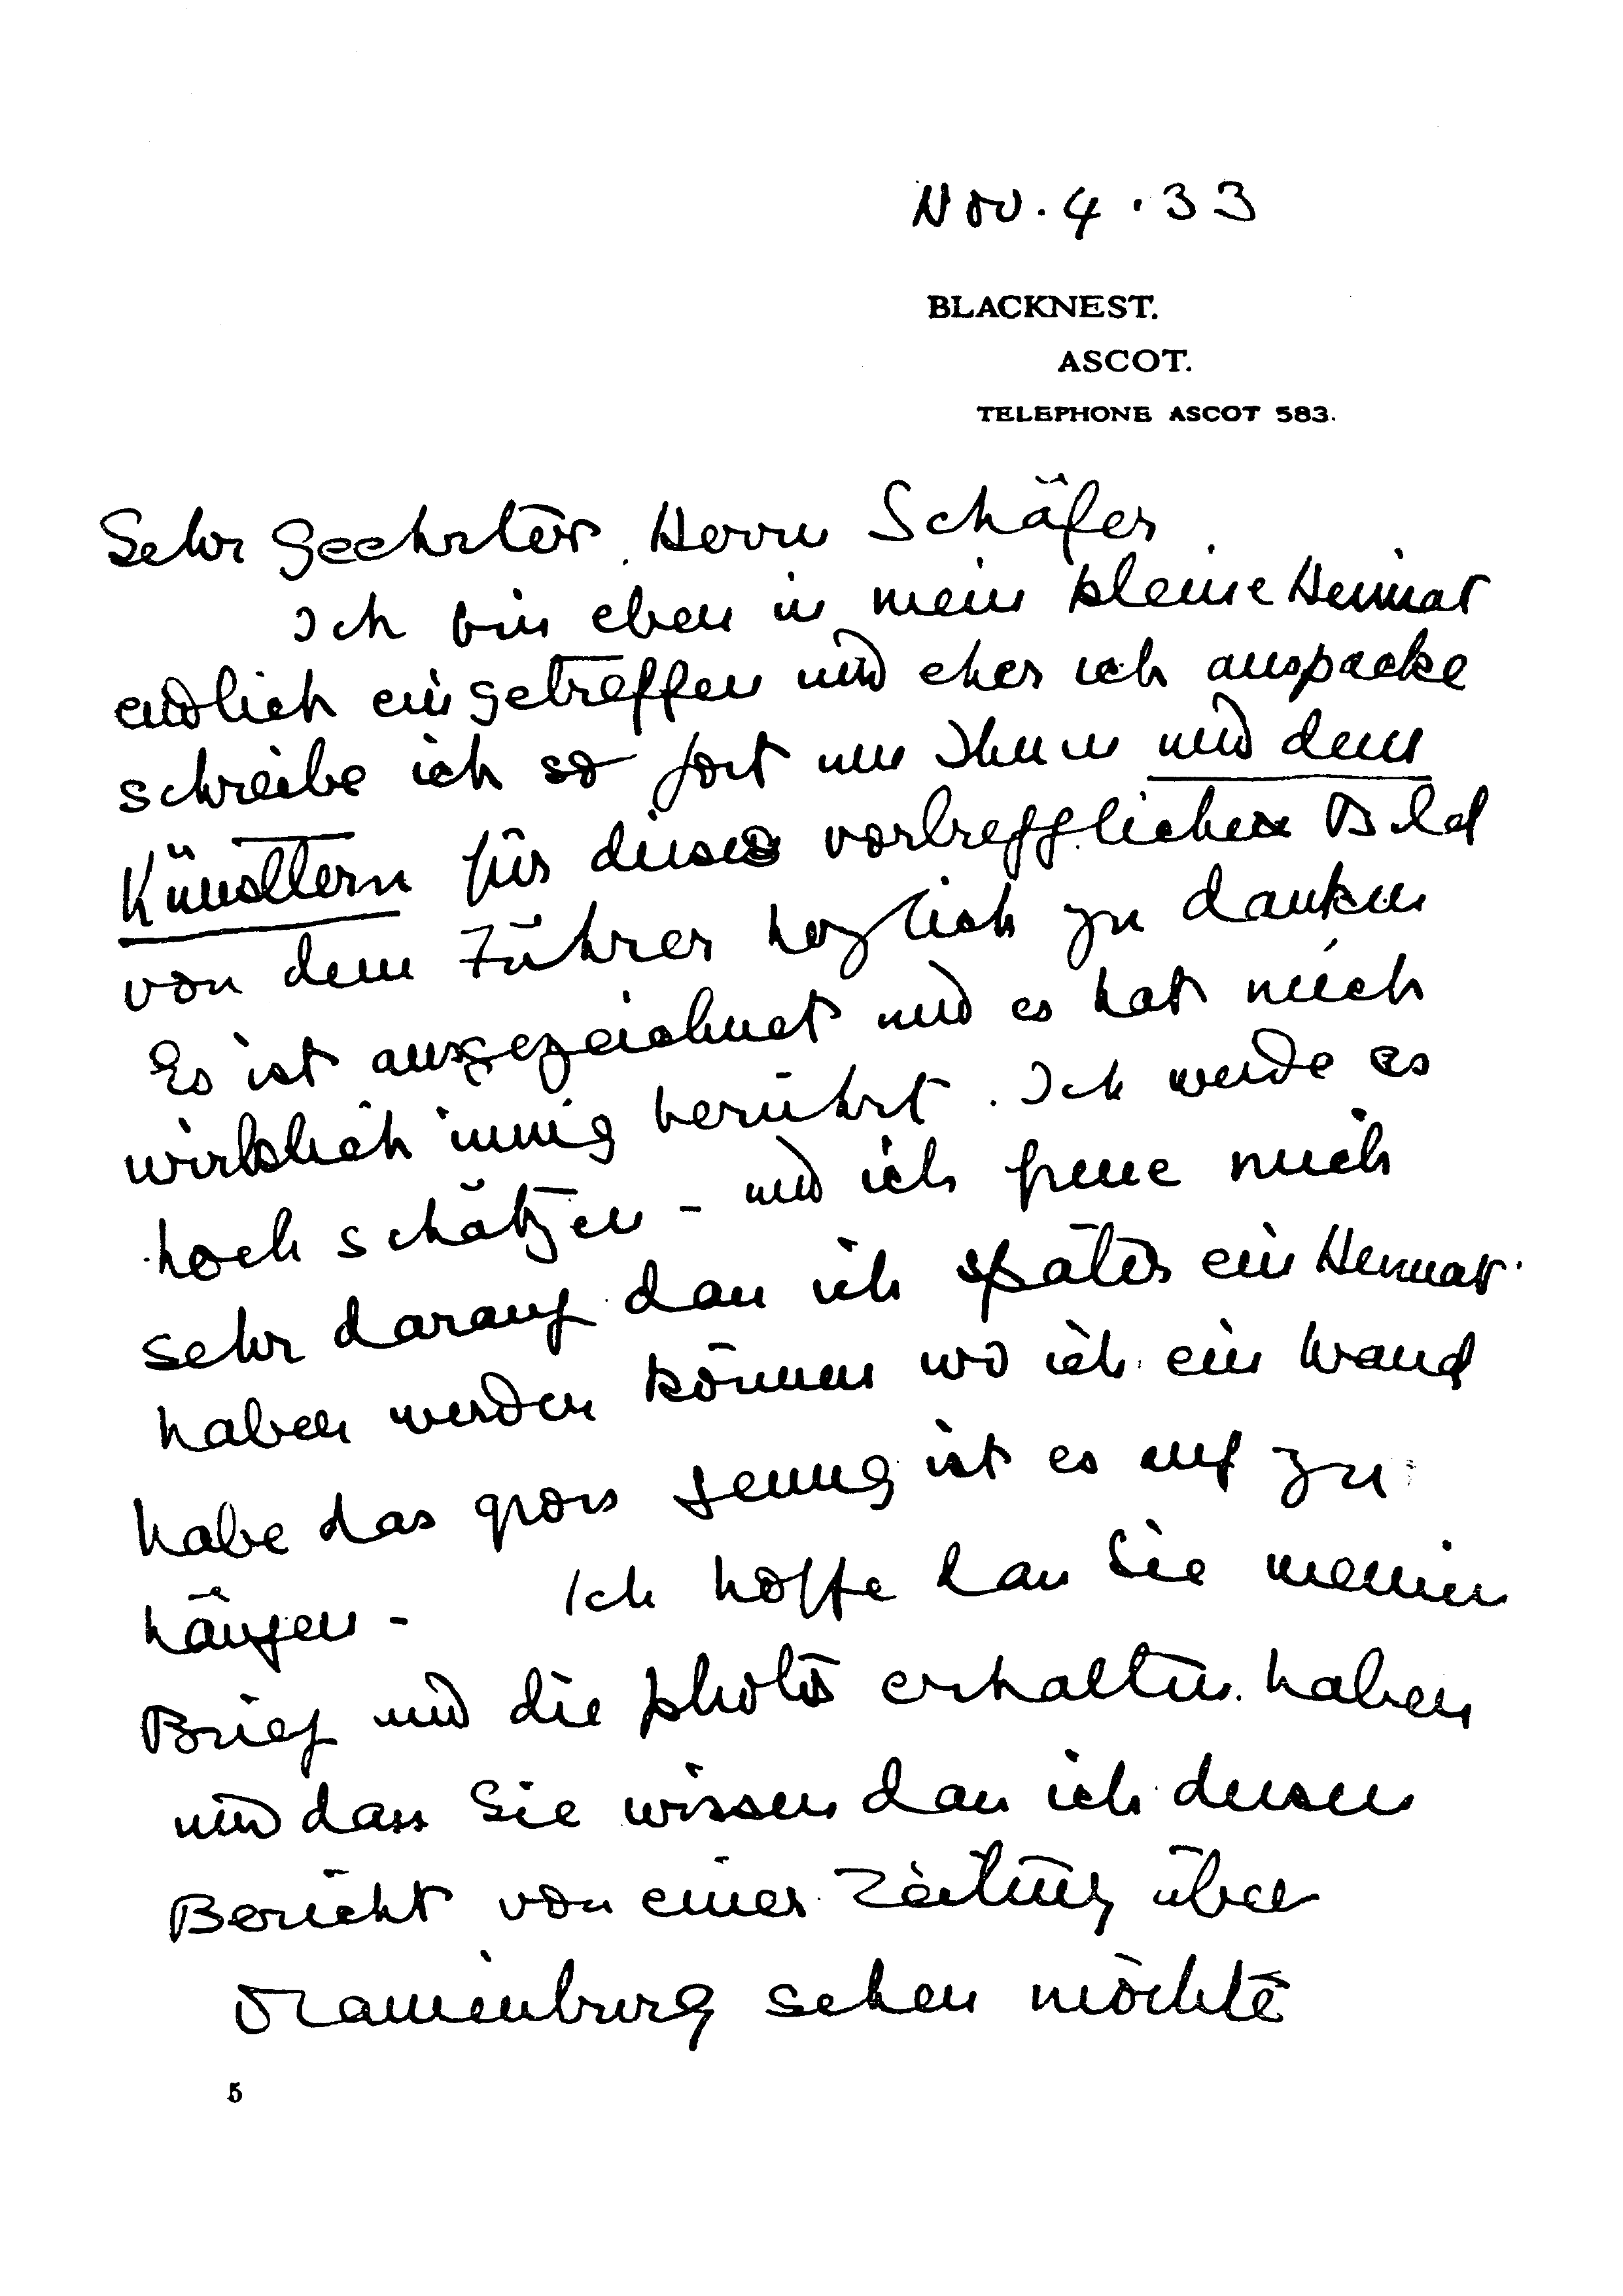 Nov. 4. 33
BLACKNEST.
ASCOT.
TELEPHONE ASCOT 583.
Sehr geehrter Herrn Schäfer
Ich bin eben in mein kleine Heimat
endlich eingetreffen und eher ich auspacke
schreibe ich so fort um Ihnen und dem
Künstlern für dieses vortrefflichen Bild
von dem Führer herzlich zu danken
Es ist ausgezeichnet und es hat mich
wirklich innig berührt. Ich werde es
hoch schätzen - und ich freue mich
sehr darauf dass ich später ein Heimat
haben werden können wo ich ein Wand
habe das gross genug ist es auf zu
hängen - Ich hoffe dass Sie meinen
Brief und die photos erhalten haben
und dass Sie wissen dass ich diesen
Bericht von einer Zeitung über
Oranienburg sehen möchte
5